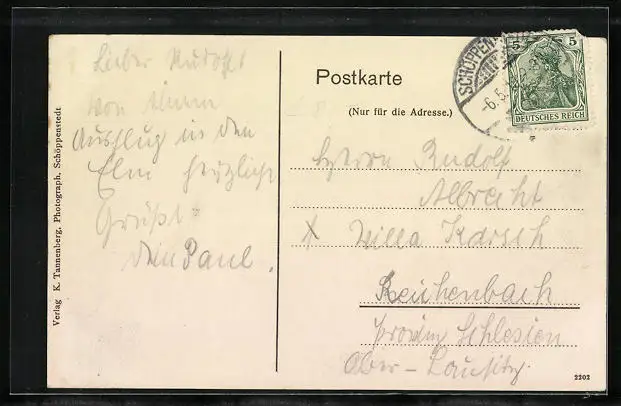 Lieber Rudolf
von einem
Ausflug in den
Elm herzliche
Grüße
dein Paul.
Verlag K. Tannenberg, Photograph, Schöppenstedt
Postkarte
(Nur für die Adresse.)
SCHÖPPENS
-6.5.
5 5
DEUTSCHES REICH
Herrn Rudolf
Albrecht
x Villa Karsch
Reichenbach
Provinz Schlesien
Ober-Lausitz.
2202